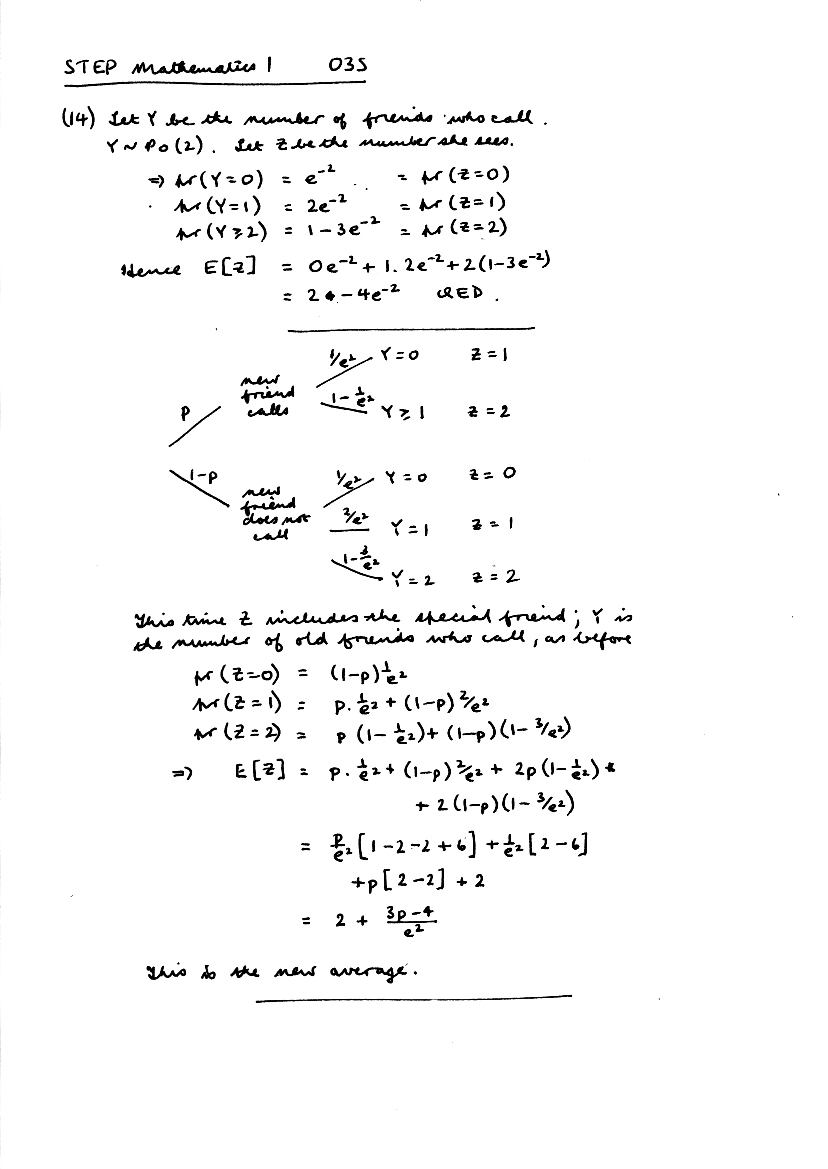 STEP Mathematics I 03S
(14) Let Y be the number of friends who call.
Y ~ Po(2). Let Z be the number she sees.
⇒ Pr(Y=0) = e⁻² = Pr(Z=0)
Pr(Y=1) = 2e⁻² = Pr(Z=1)
Pr(Y≥2) = 1-3e⁻² = Pr(Z=2)
Hence E[Z] = 0e⁻² + 1.2e⁻² + 2(1-3e⁻²)
= 2 - 4e⁻² QED.
1/e² Y=0 Z=1
new friend calls
p
1-1/e² Y≥1 Z=2
1-p
1/e² Y=0 Z=0
new friend does not call
2/e² Y=1 Z=1
1-3/e² Y=2 Z=2
This time Z includes the special friend; Y is
the number of old friends who call, as before
Pr(Z=0) = (1-p)1/e²
Pr(Z=1) = p.1/e² + (1-p)2/e²
Pr(Z=2) = p(1-1/e²) + (1-p)(1-3/e²)
⇒ E[Z] = p.1/e² + (1-p)2/e² + 2p(1-1/e²)
+ 2(1-p)(1-3/e²)
= p/e²[1-2-2+6] + 1/e²[2-6]
+p[2-2] + 2
= 2 + (3p-4)/e²
This is the new average.